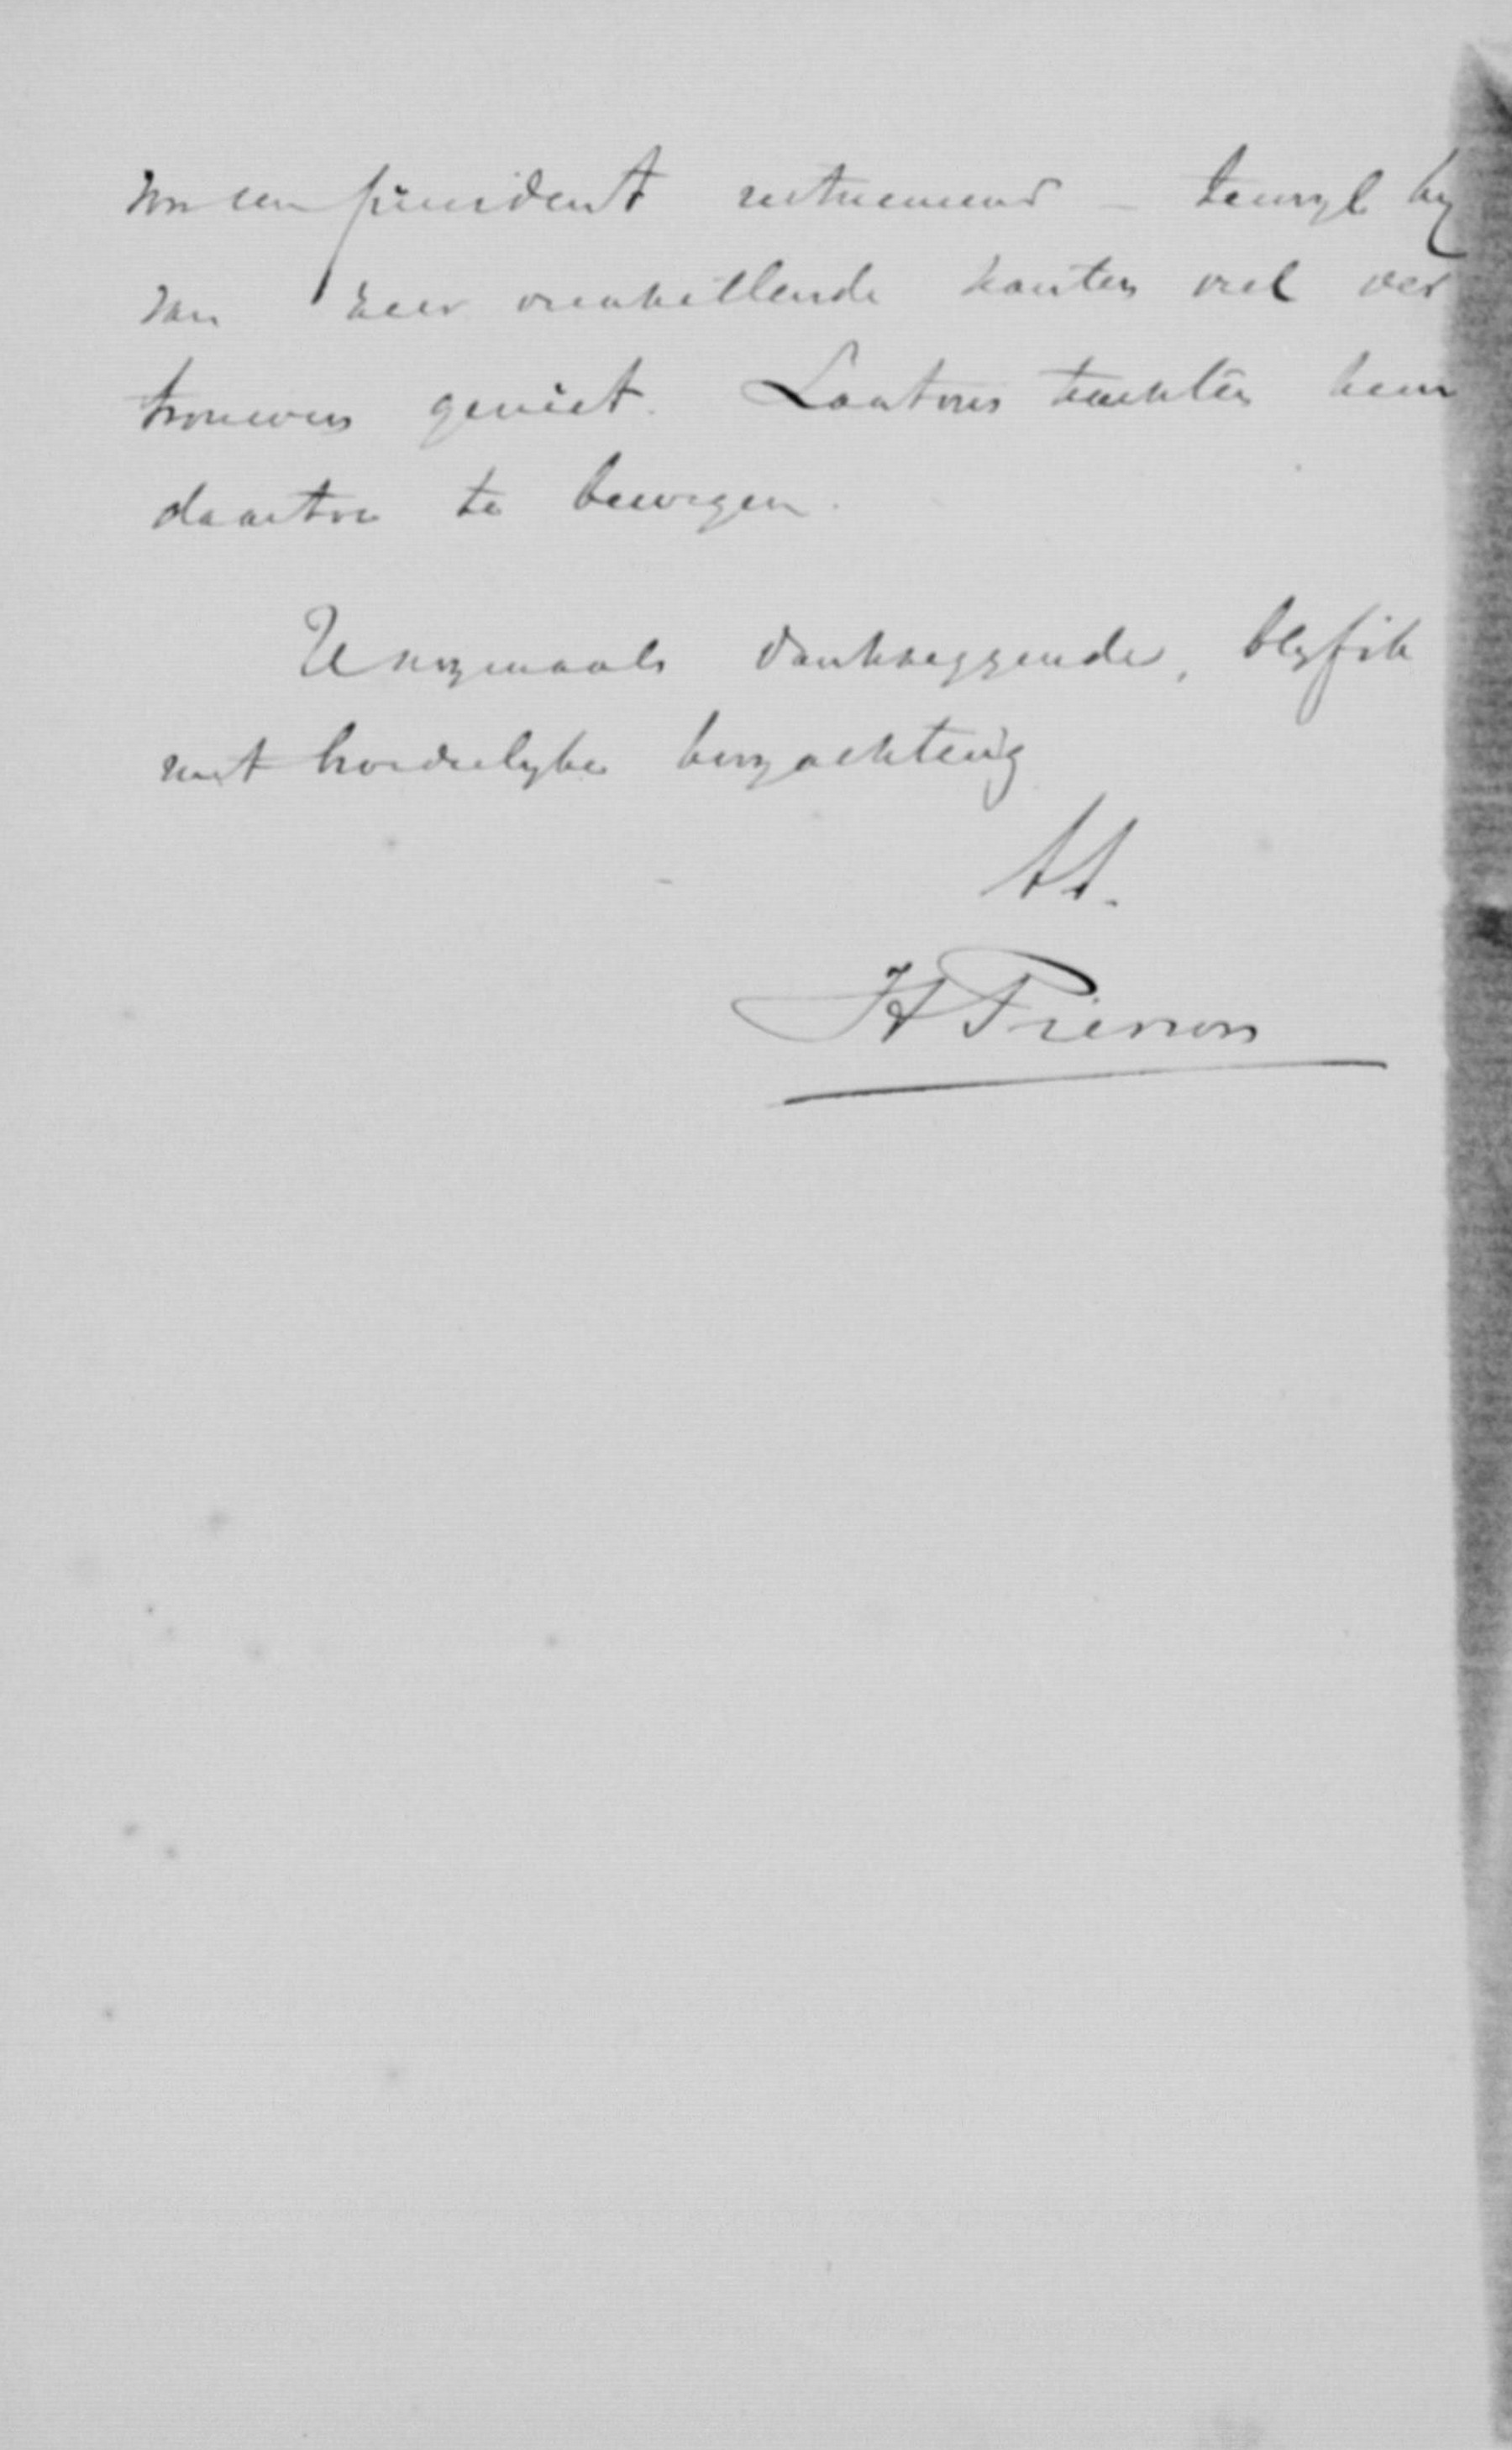 van een president uitnemend – terwyl hy
van zeer verschillende kanten veel ver
trouwen geniet. Laat ons trachten hem
daartoe te bewegen.
U nogmaals dankzeggende, blyf ik
met broederlyke hoogachting
H Pierson